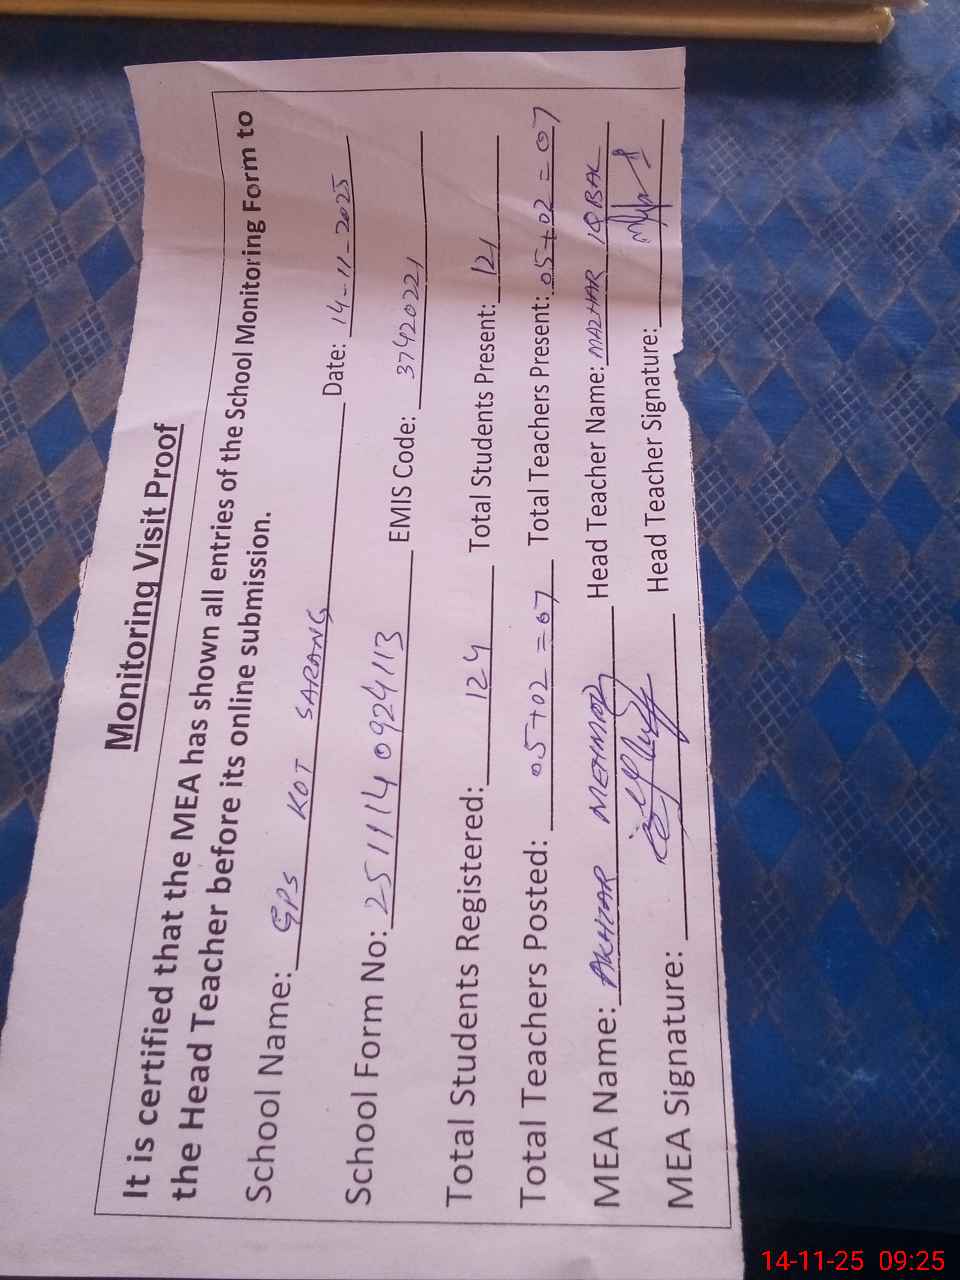 Monitoring Visit Proof
It is certified that the MEA has shown all entries of the School Monitoring Form to
the Head Teacher before its online submission.
School Name: GPS KOT SARANG Date: 14-11-2025
School Form No: 251114 0924113 EMIS Code: 37420221
Total Students Registered: 124 Total Students Present: 121
Total Teachers Posted: 05+02 = 07 Total Teachers Present: 05+02 = 07
MEA Name: AKHTAR MEHMOOD Head Teacher Name: MAZHAR IQBAL
MEA Signature: Head Teacher Signature:
14-11-25 09:25